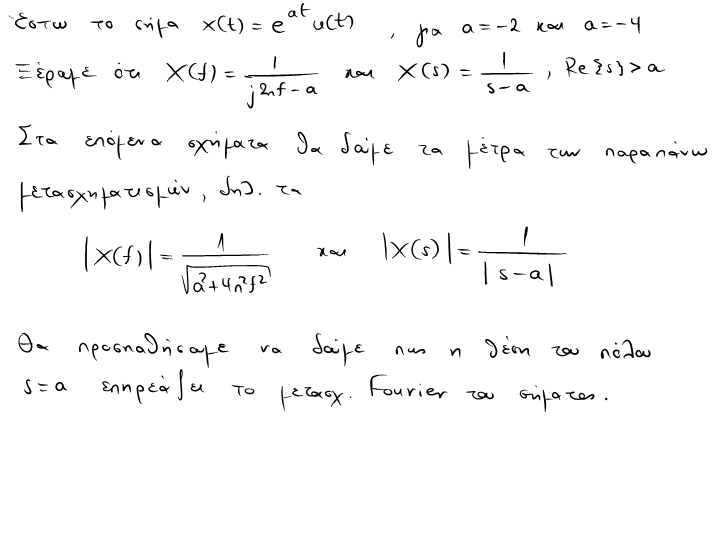 Έστω το σήμα x(t) = e^{at} u(t) , για a = -2 και a = -4
Ξέραμε ότι X(f) = \frac{1}{j2πf - a} και X(s) = \frac{1}{s - a} , Re{s} > a
Στα επόμενα σχήματα θα δούμε τα μέτρα των παραπάνω
μετασχηματισμών, δηλ. τα
|X(f)| = \frac{1}{\sqrt{a^2 + 4π^2f^2}} και |X(s)| = \frac{1}{|s - a|}
Θα προσπαθήσουμε να δούμε πως η θέση του πόλου
s = a επηρεάζει το μετασχ. Fourier του σήματος.